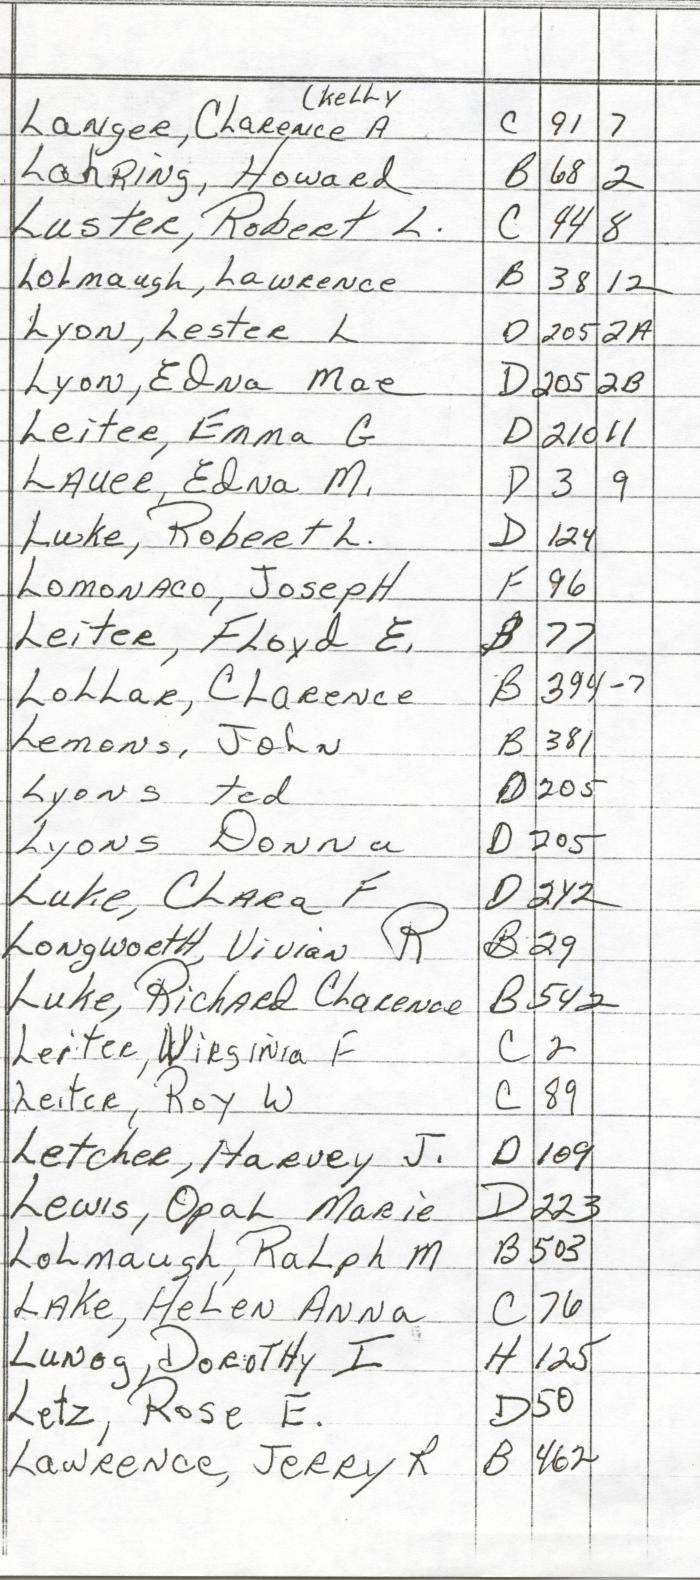 (Kelly
Langer, Clarence A C 91 7
LahRing, Howard B 68 2
Luster, Robert L. C 44 8
Lolmaugh, Lawrence B 38 12
Lyon, Lester L D 205 2A
Lyon, Edna Mae D 205 2B
Leiter, Emma G D 210 11
LAuer, Edna M. D 3 9
Luke, Robert L. D 124
Lomonaco, Joseph F 96
Leiter, Floyd E. B 77
Lollar, Clarence B 394-7
Lemons, John B 381
Lyons ted D 205
Lyons Donna D 205
Luke, Clara F D 242
Longworth, Vivian R B 29
Luke, Richard Clarence B 542
Leiter, Virginia F C 2
Leiter, Roy W C 89
Letcher, Harvey J. D 109
Lewis, Opal Marie D 223
Lolmaugh, Ralph M B 503
LAke, Helen Anna C 76
Lunog, Dorothy I H 125
Letz, Rose E. D 50
Lawrence, Jerry R B 462